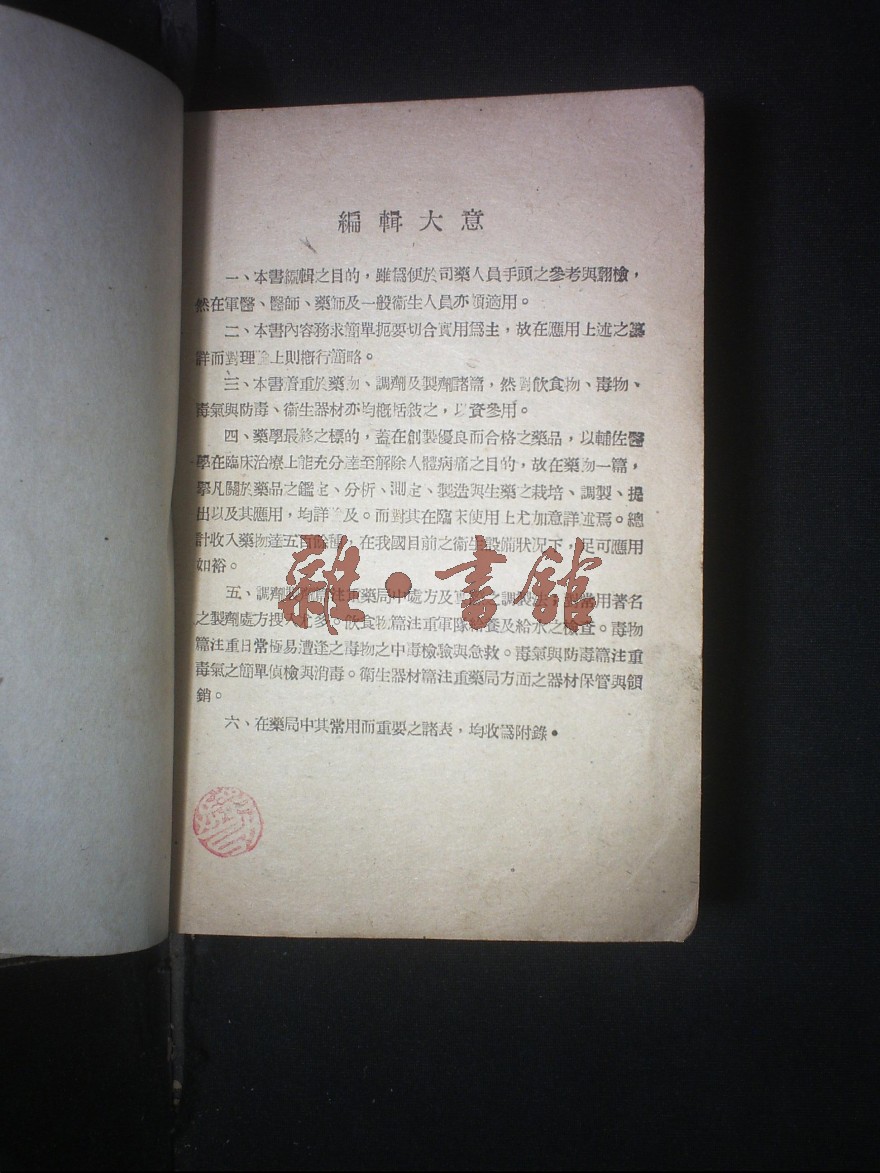 編輯大意
一、本書編輯之目的，雖爲便於司藥人員手頭之參考與翻檢，
然在軍醫、醫師、藥師及一般衞生人員亦頗適用。
二、本書內容務求簡單扼要切合實用爲主，故在應用上述之綦
詳而對理論上則槪行簡略。
三、本書着重於藥物、調劑及製劑諸篇，然對飲食物、毒物、
毒氣與防毒、衞生器材亦均槪括敍之，以資參用。
四、藥學最終之標的，蓋在創製優良而合格之藥品，以輔佐醫
學在臨床治療上能充分達至解除人體病痛之目的，故在藥物一篇，
舉凡關於藥品之鑑定、分析、測定、製造與生藥之栽培、調製、提
出以及其應用，均詳論及。而對其在臨床使用上尤加意詳述焉。總
計收入藥物達五百餘種，在我國目前之衞生設備狀況下，足可應用
如裕。
五、調劑製劑篇注重藥局中處方及之調製常用著名
之製劑處方搜入尤多。飲食物篇注重軍隊給養及給水之檢查。毒物
篇注重日常極易遭逢之毒物之中毒檢驗與急救。毒氣與防毒篇注重
毒氣之簡單偵檢與消毒。衞生器材篇注重藥局方面之器材保管與領
銷。
六、在藥局中其常用而重要之諸表，均收爲附錄。
雜·書館